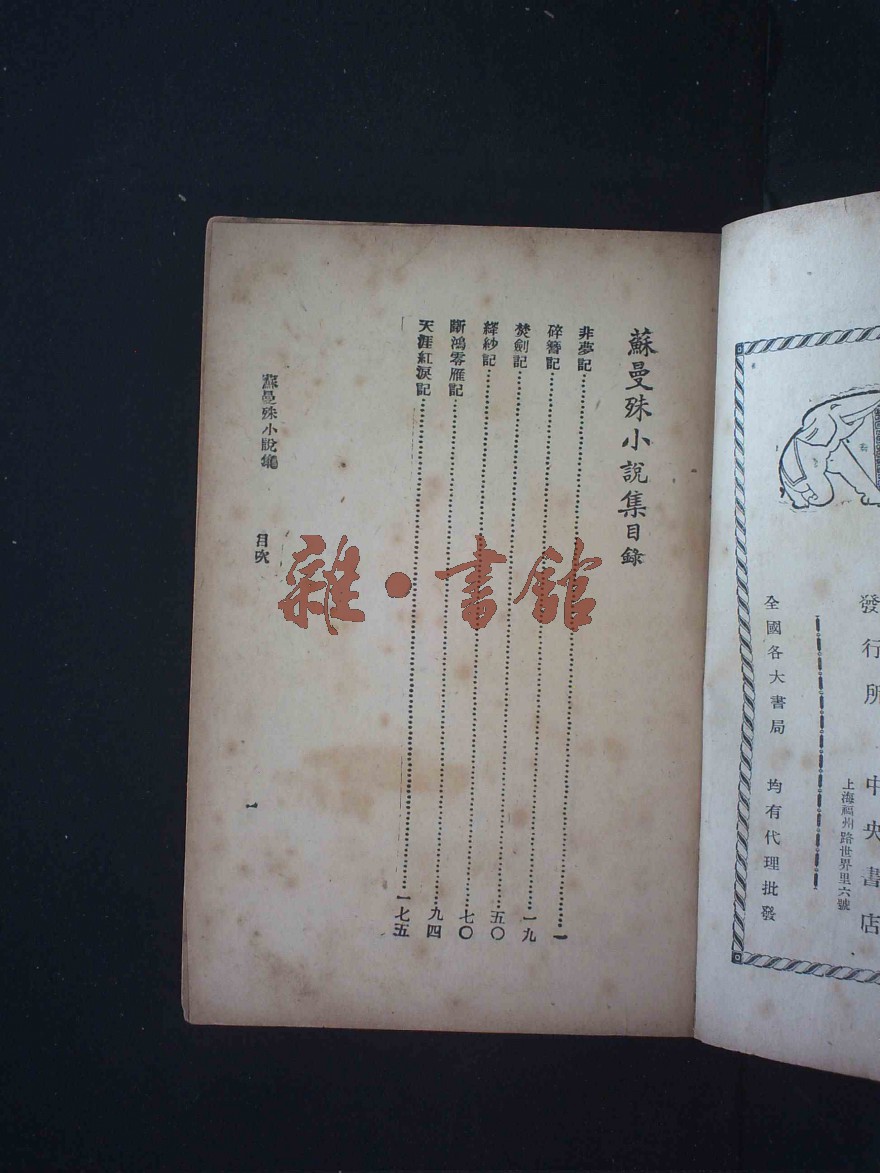 發行所 中央書店
上海福州路世界里六號
全國各大書局 均有代理批發
蘇曼殊小說集目錄
非夢記……一
碎簪記……一九
焚劍記……五〇
絳紗記……七〇
斷鴻零雁記……九四
天涯紅淚記……一七五
蘇曼殊小說集 目次 一
雜·書館